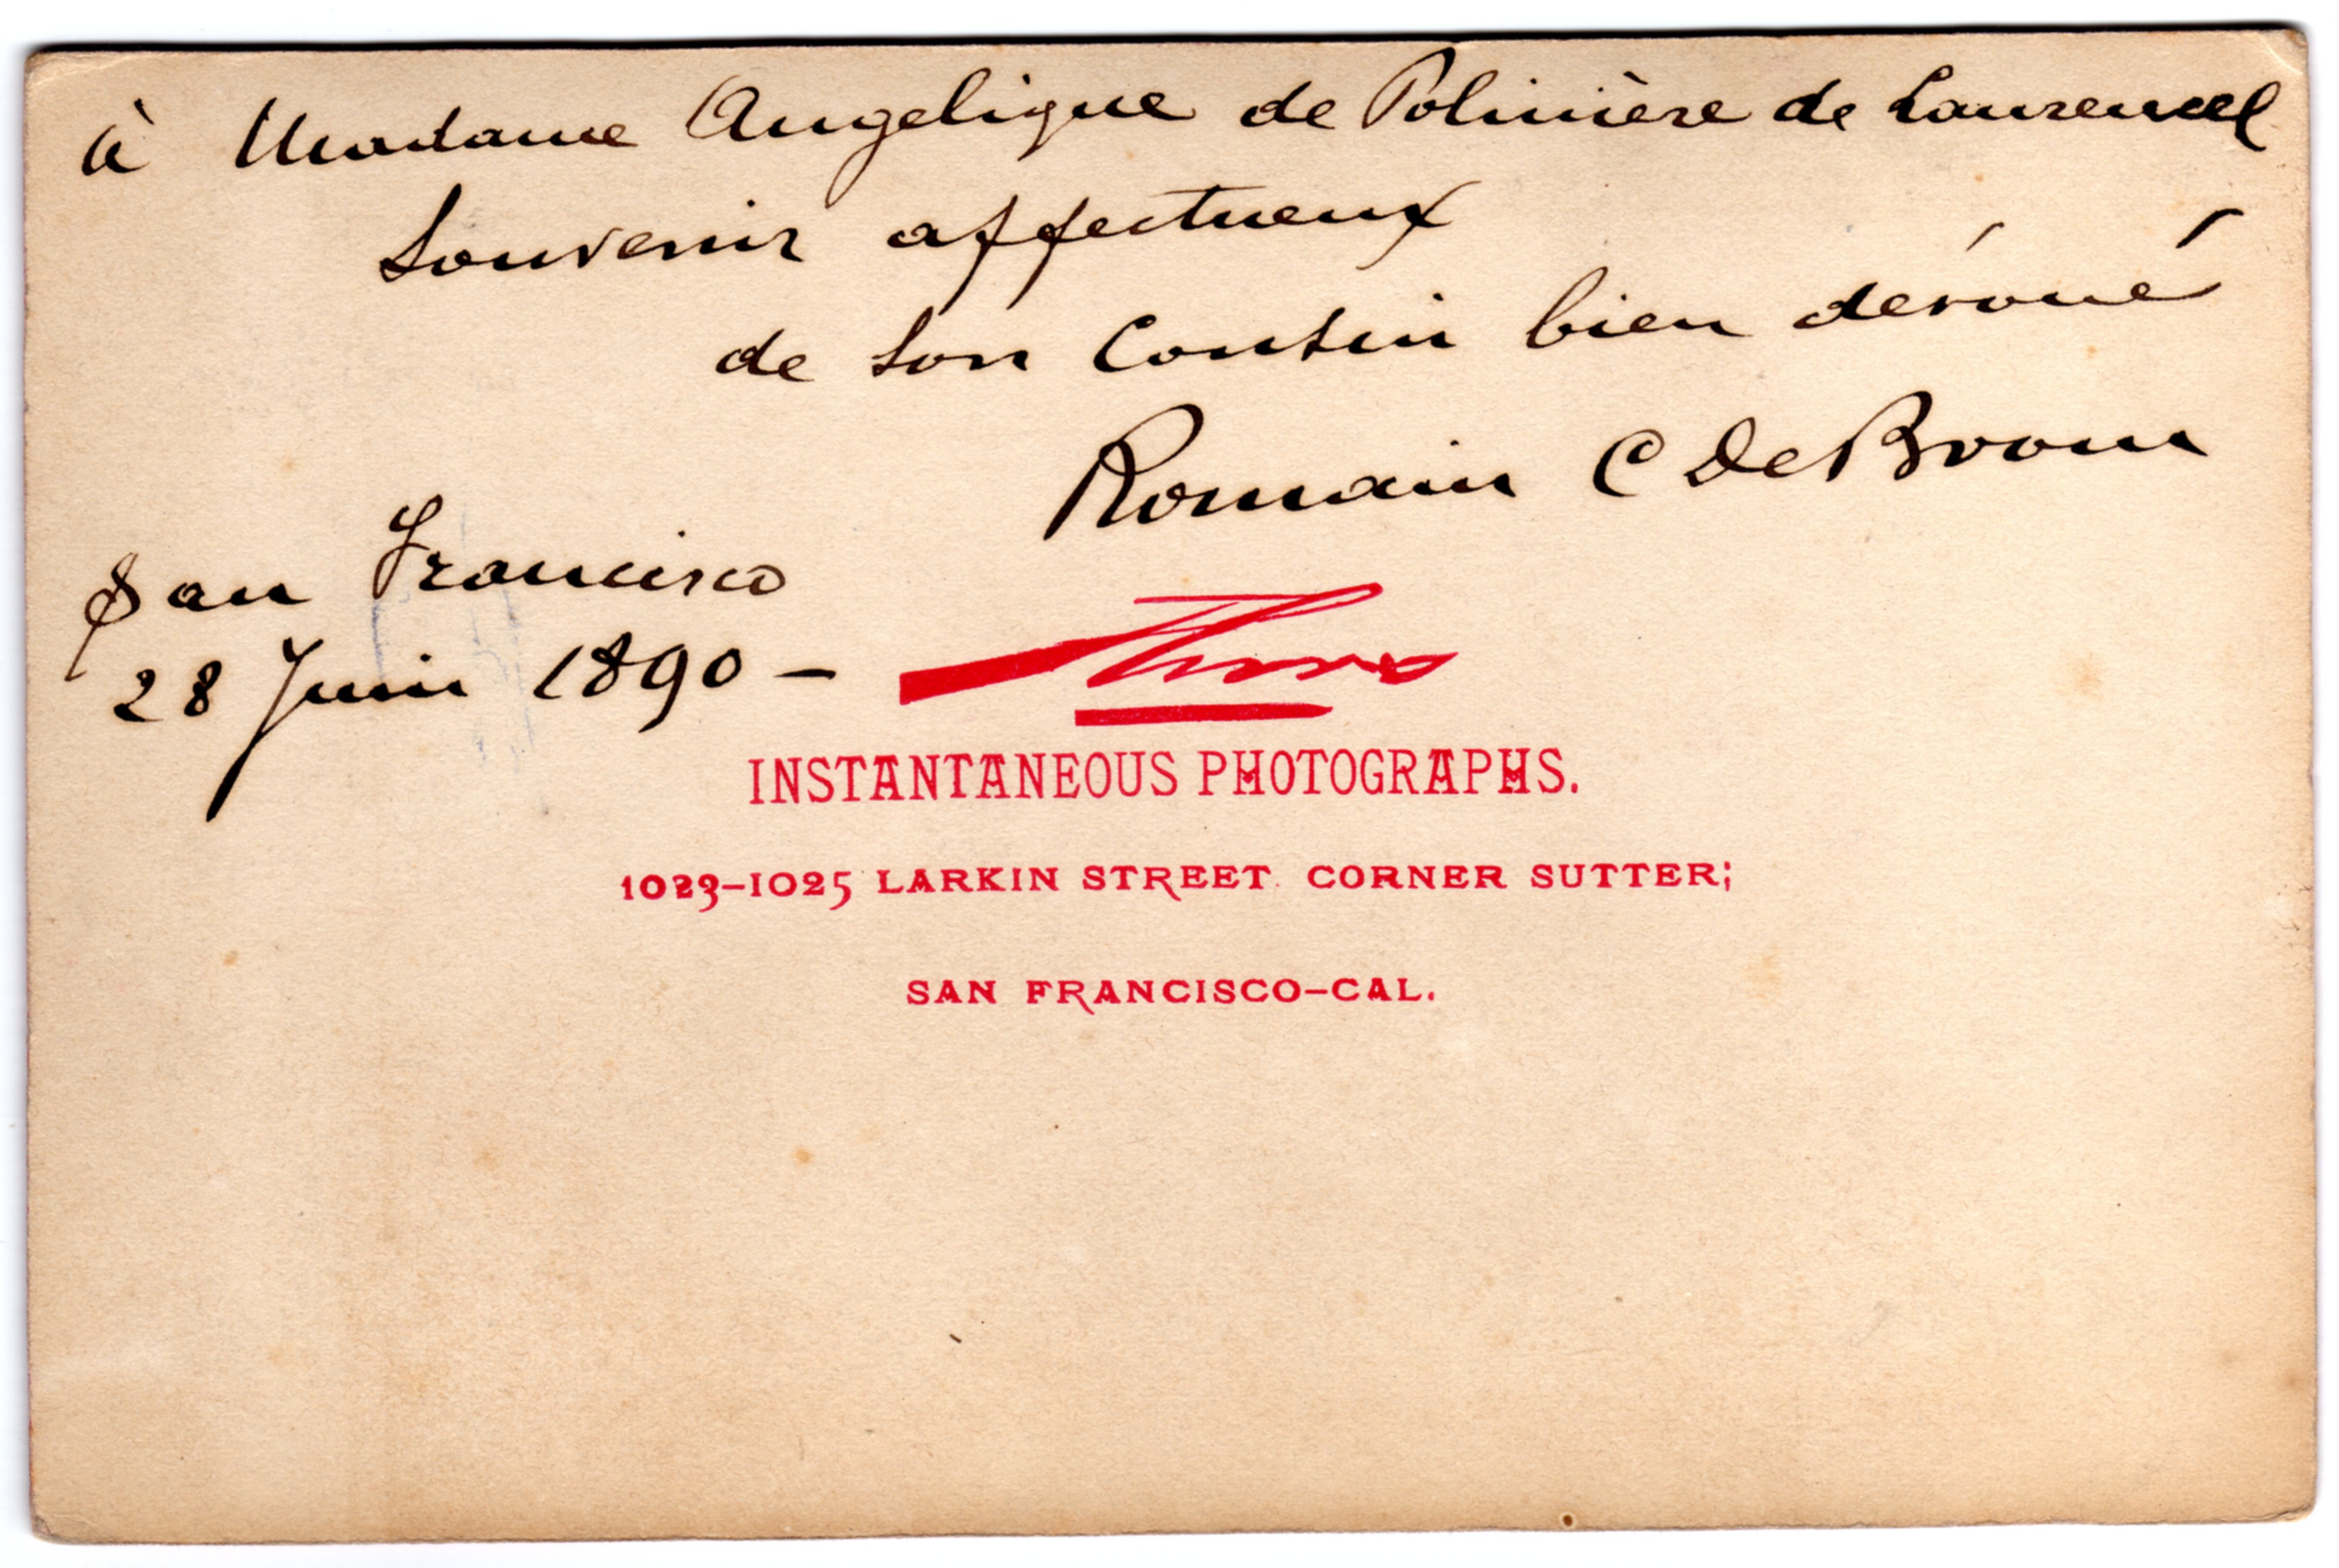 à Madame Angelique de Polinière de Laurencel
Souvenir affectueux
de son Cousin bien dévoué
Romain C DeBoom
San Francisco
28 Juin 1890 –
INSTANTANEOUS PHOTOGRAPHS.
1023–1025 LARKIN STREET CORNER SUTTER;
SAN FRANCISCO–CAL.